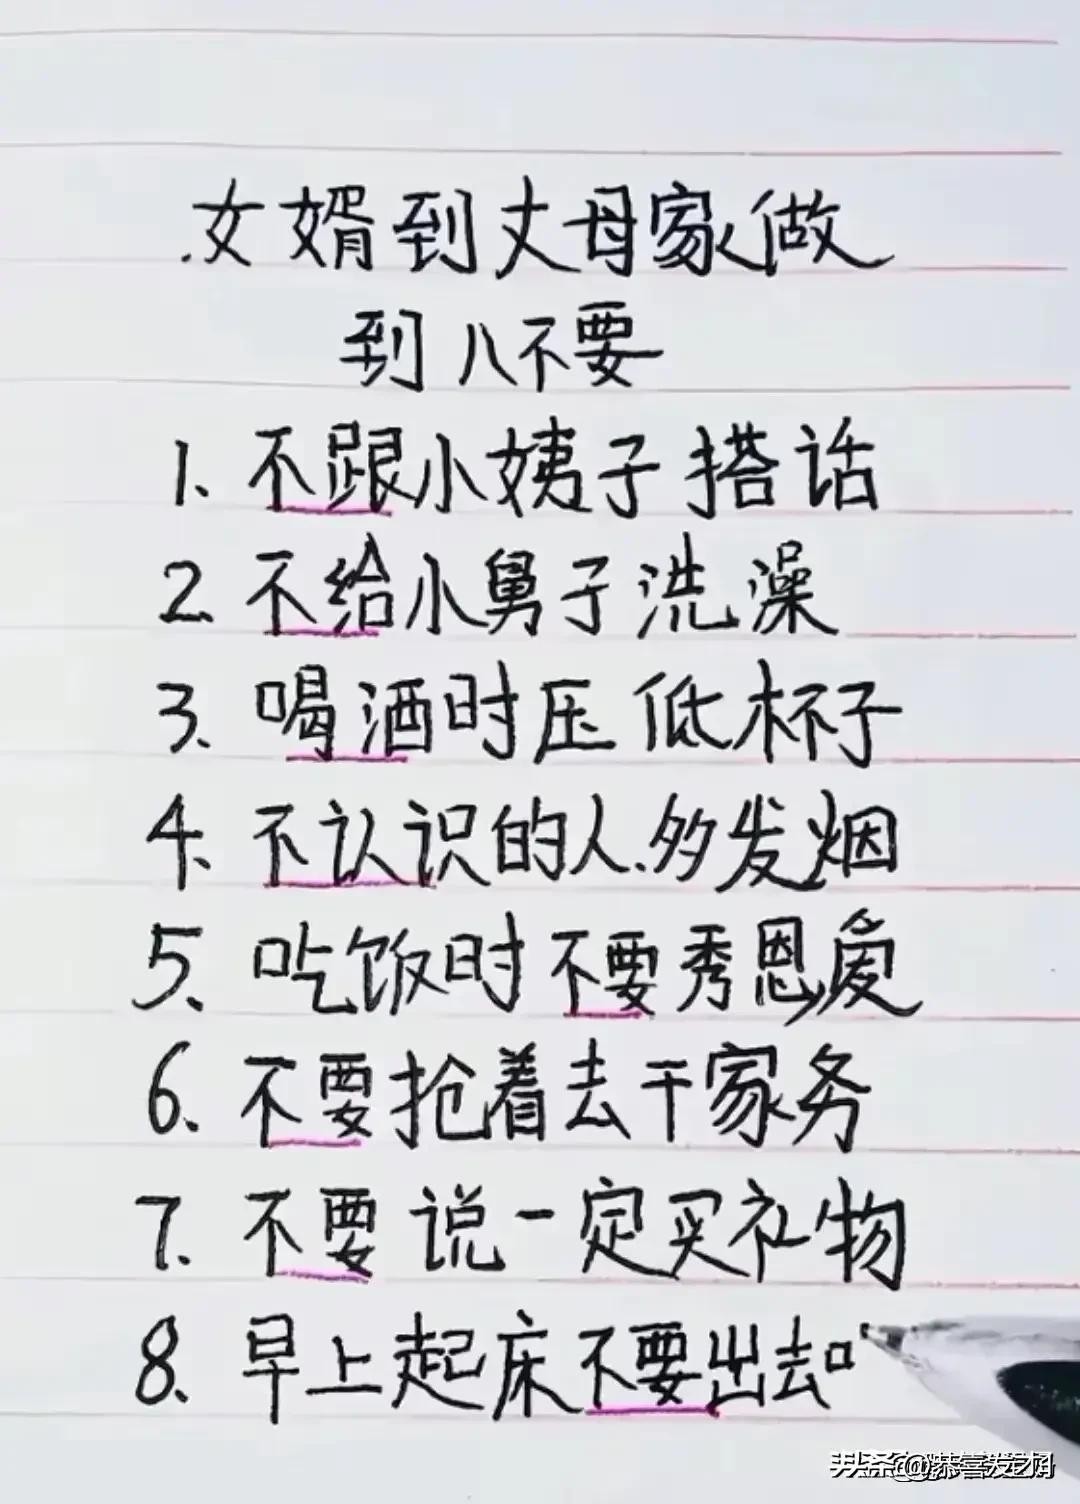 女婿到丈母家做
到八不要
1、不跟小姨子搭话
2、不给小舅子洗澡
3、喝酒时压低杯子
4、不认识的人多发烟
5、吃饭时不要秀恩爱
6、不要抢着去干家务
7、不要说一定买礼物
8、早上起床不要出去
头条@恭喜发